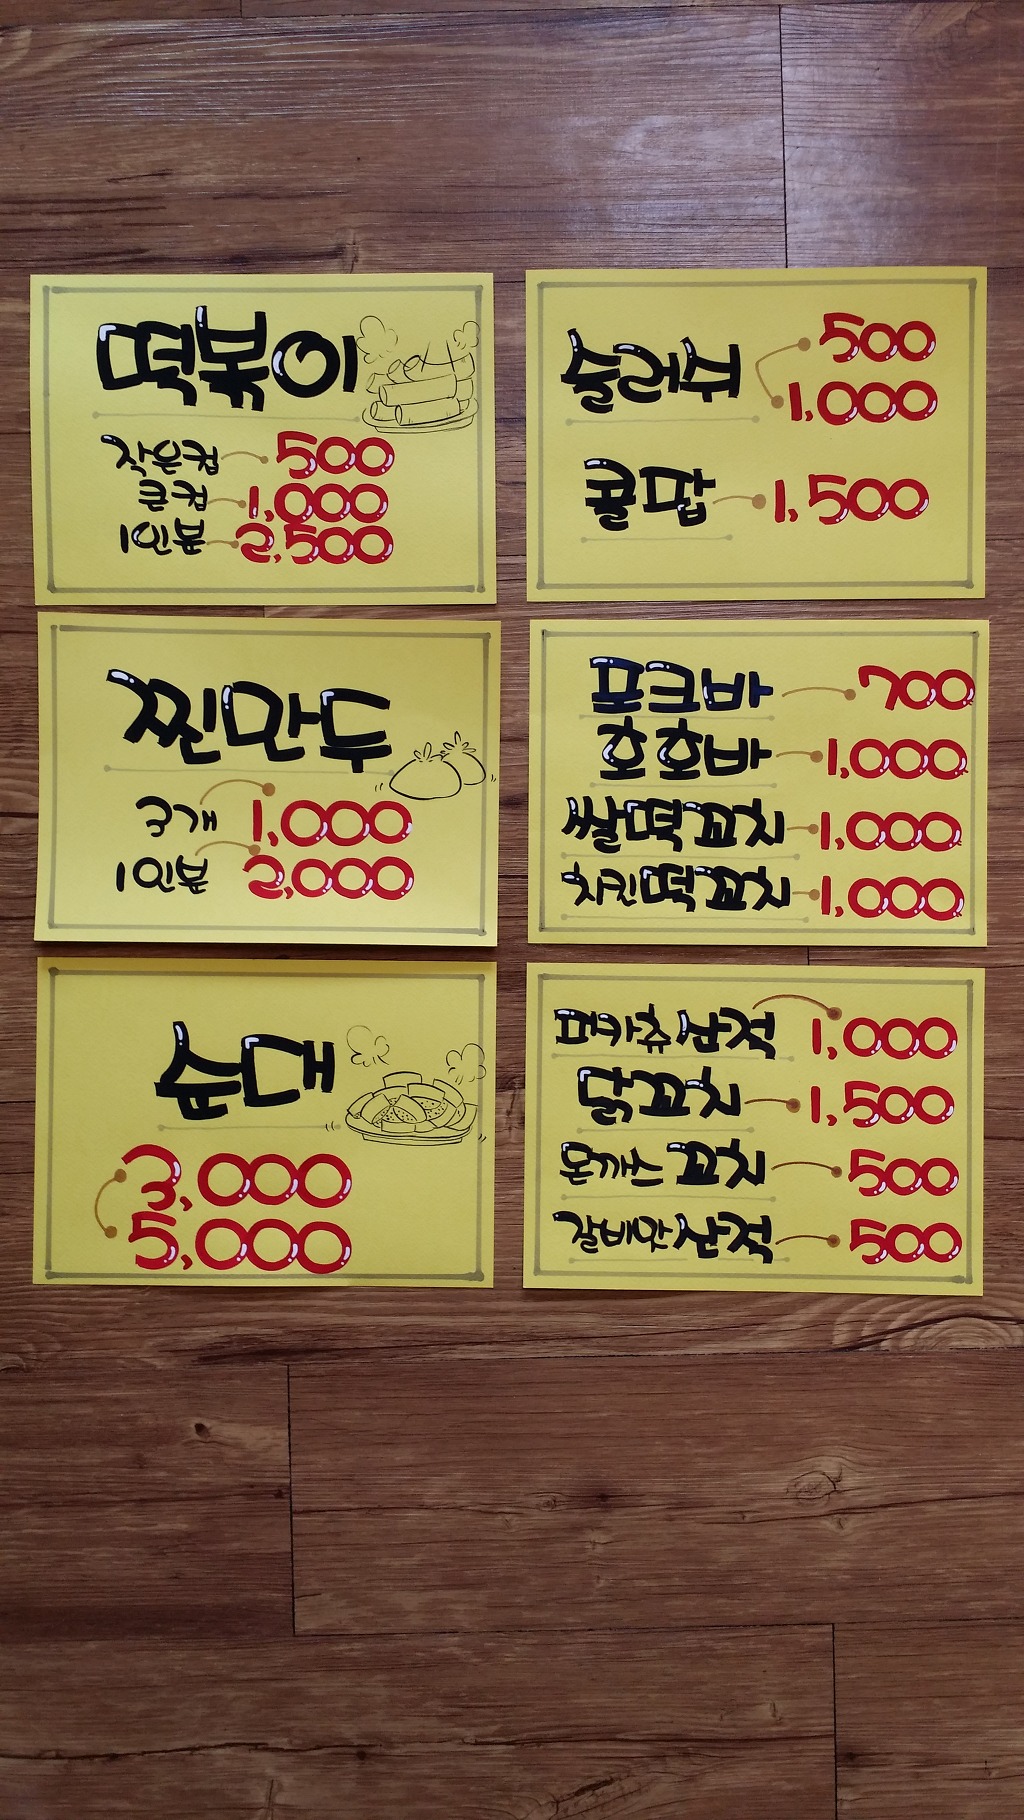 떡볶이
작은컵 500
큰컵 1,000
1인분 2,500
500
1,000
콜팝 1,500
찐만두
3개 1,000
1인분 2,000
포크바 700
호호바 1,000
찰떡꼬치 1,000
치킨떡꼬치 1,000
순대
3,000
5,000
산적 1,000
닭꼬치 1,500
돈까스 꼬치 500
갈비맛산적 500